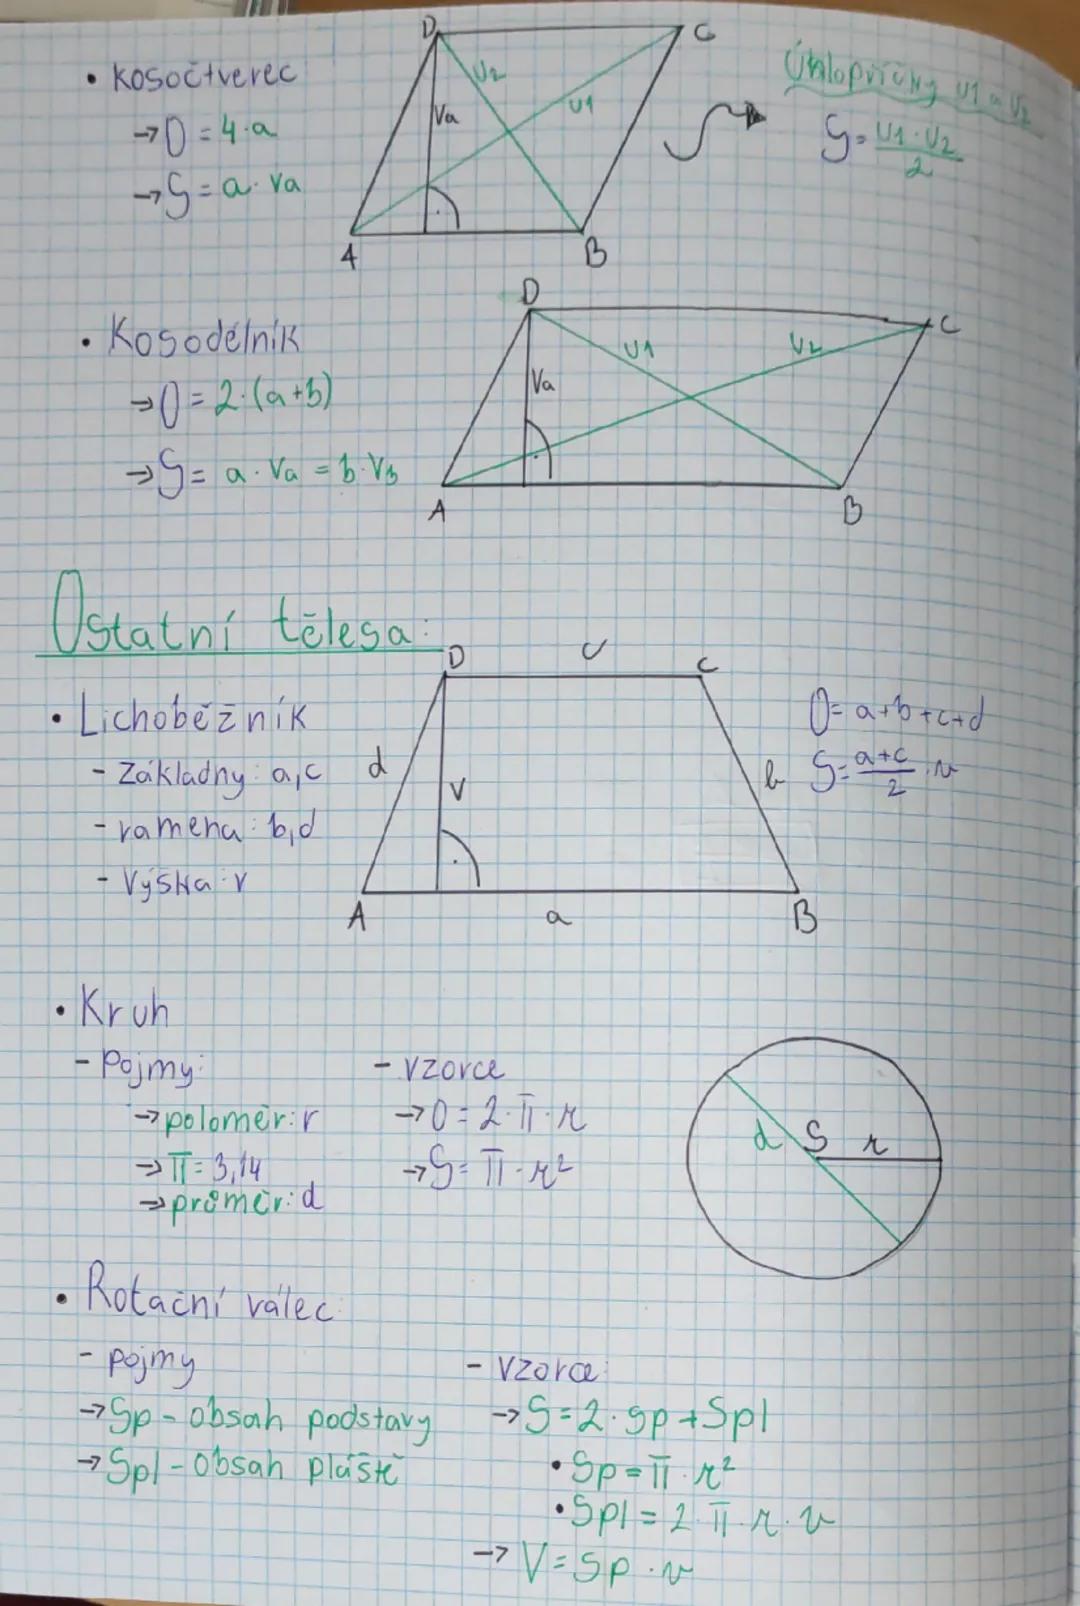 • Kosočtverec
→ O = 4·a
→ S = a·va
D
C
u2
u1
va
A
B
Úhlopříčky u1 a u2
S = u1·u2
2
• Kosodélník
→ O = 2·(a+b)
→ S = a·va = b·vb
D
C
u1
u2
va
A
B
Ostatní tělesa:
• Lichoběžník
- Základny: a,c
- ramena: b,d
- Výška: v
D
c
C
d
v
b
A
a
B
O = a+b+c+d
S = a+c
2 ·v
• Kruh
- Pojmy:
→ poloměr: r
→ π = 3,14
→ průměr: d
- vzorce
→ O = 2·π·r
→ S = π·r²
d
S
r
• Rotační válec:
- pojmy
→ Sp - obsah podstavy
→ Spl - obsah pláště
- vzorce:
→ S = 2·Sp + Spl
• Sp = π·r²
• Spl = 2·π·r·v
→ V = Sp·v